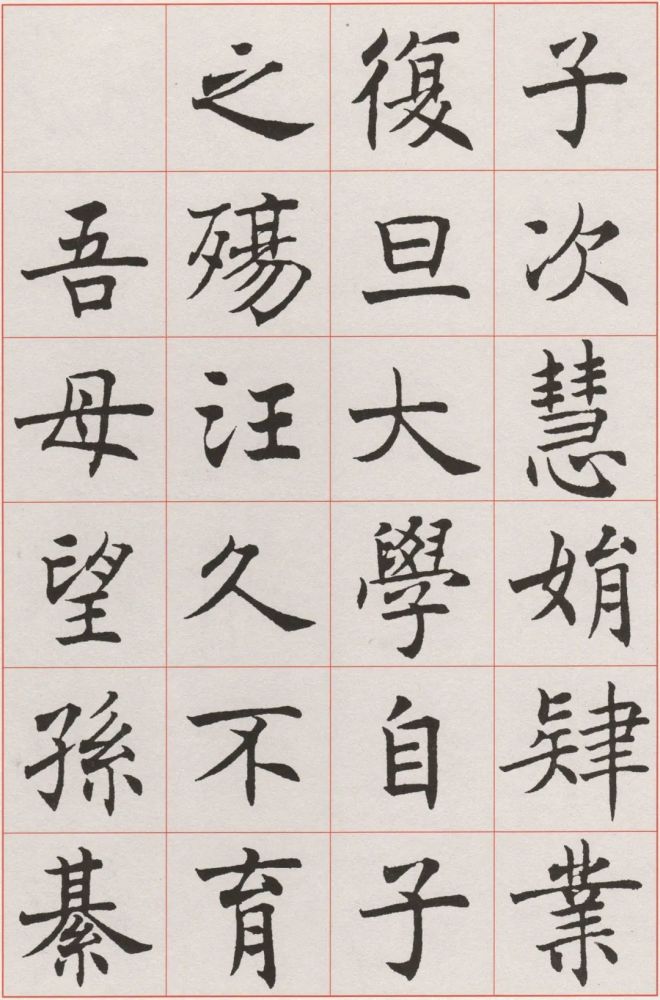 子次慧娟肄業
復旦大學自子
之殤汪久不育
吾母望孫綦